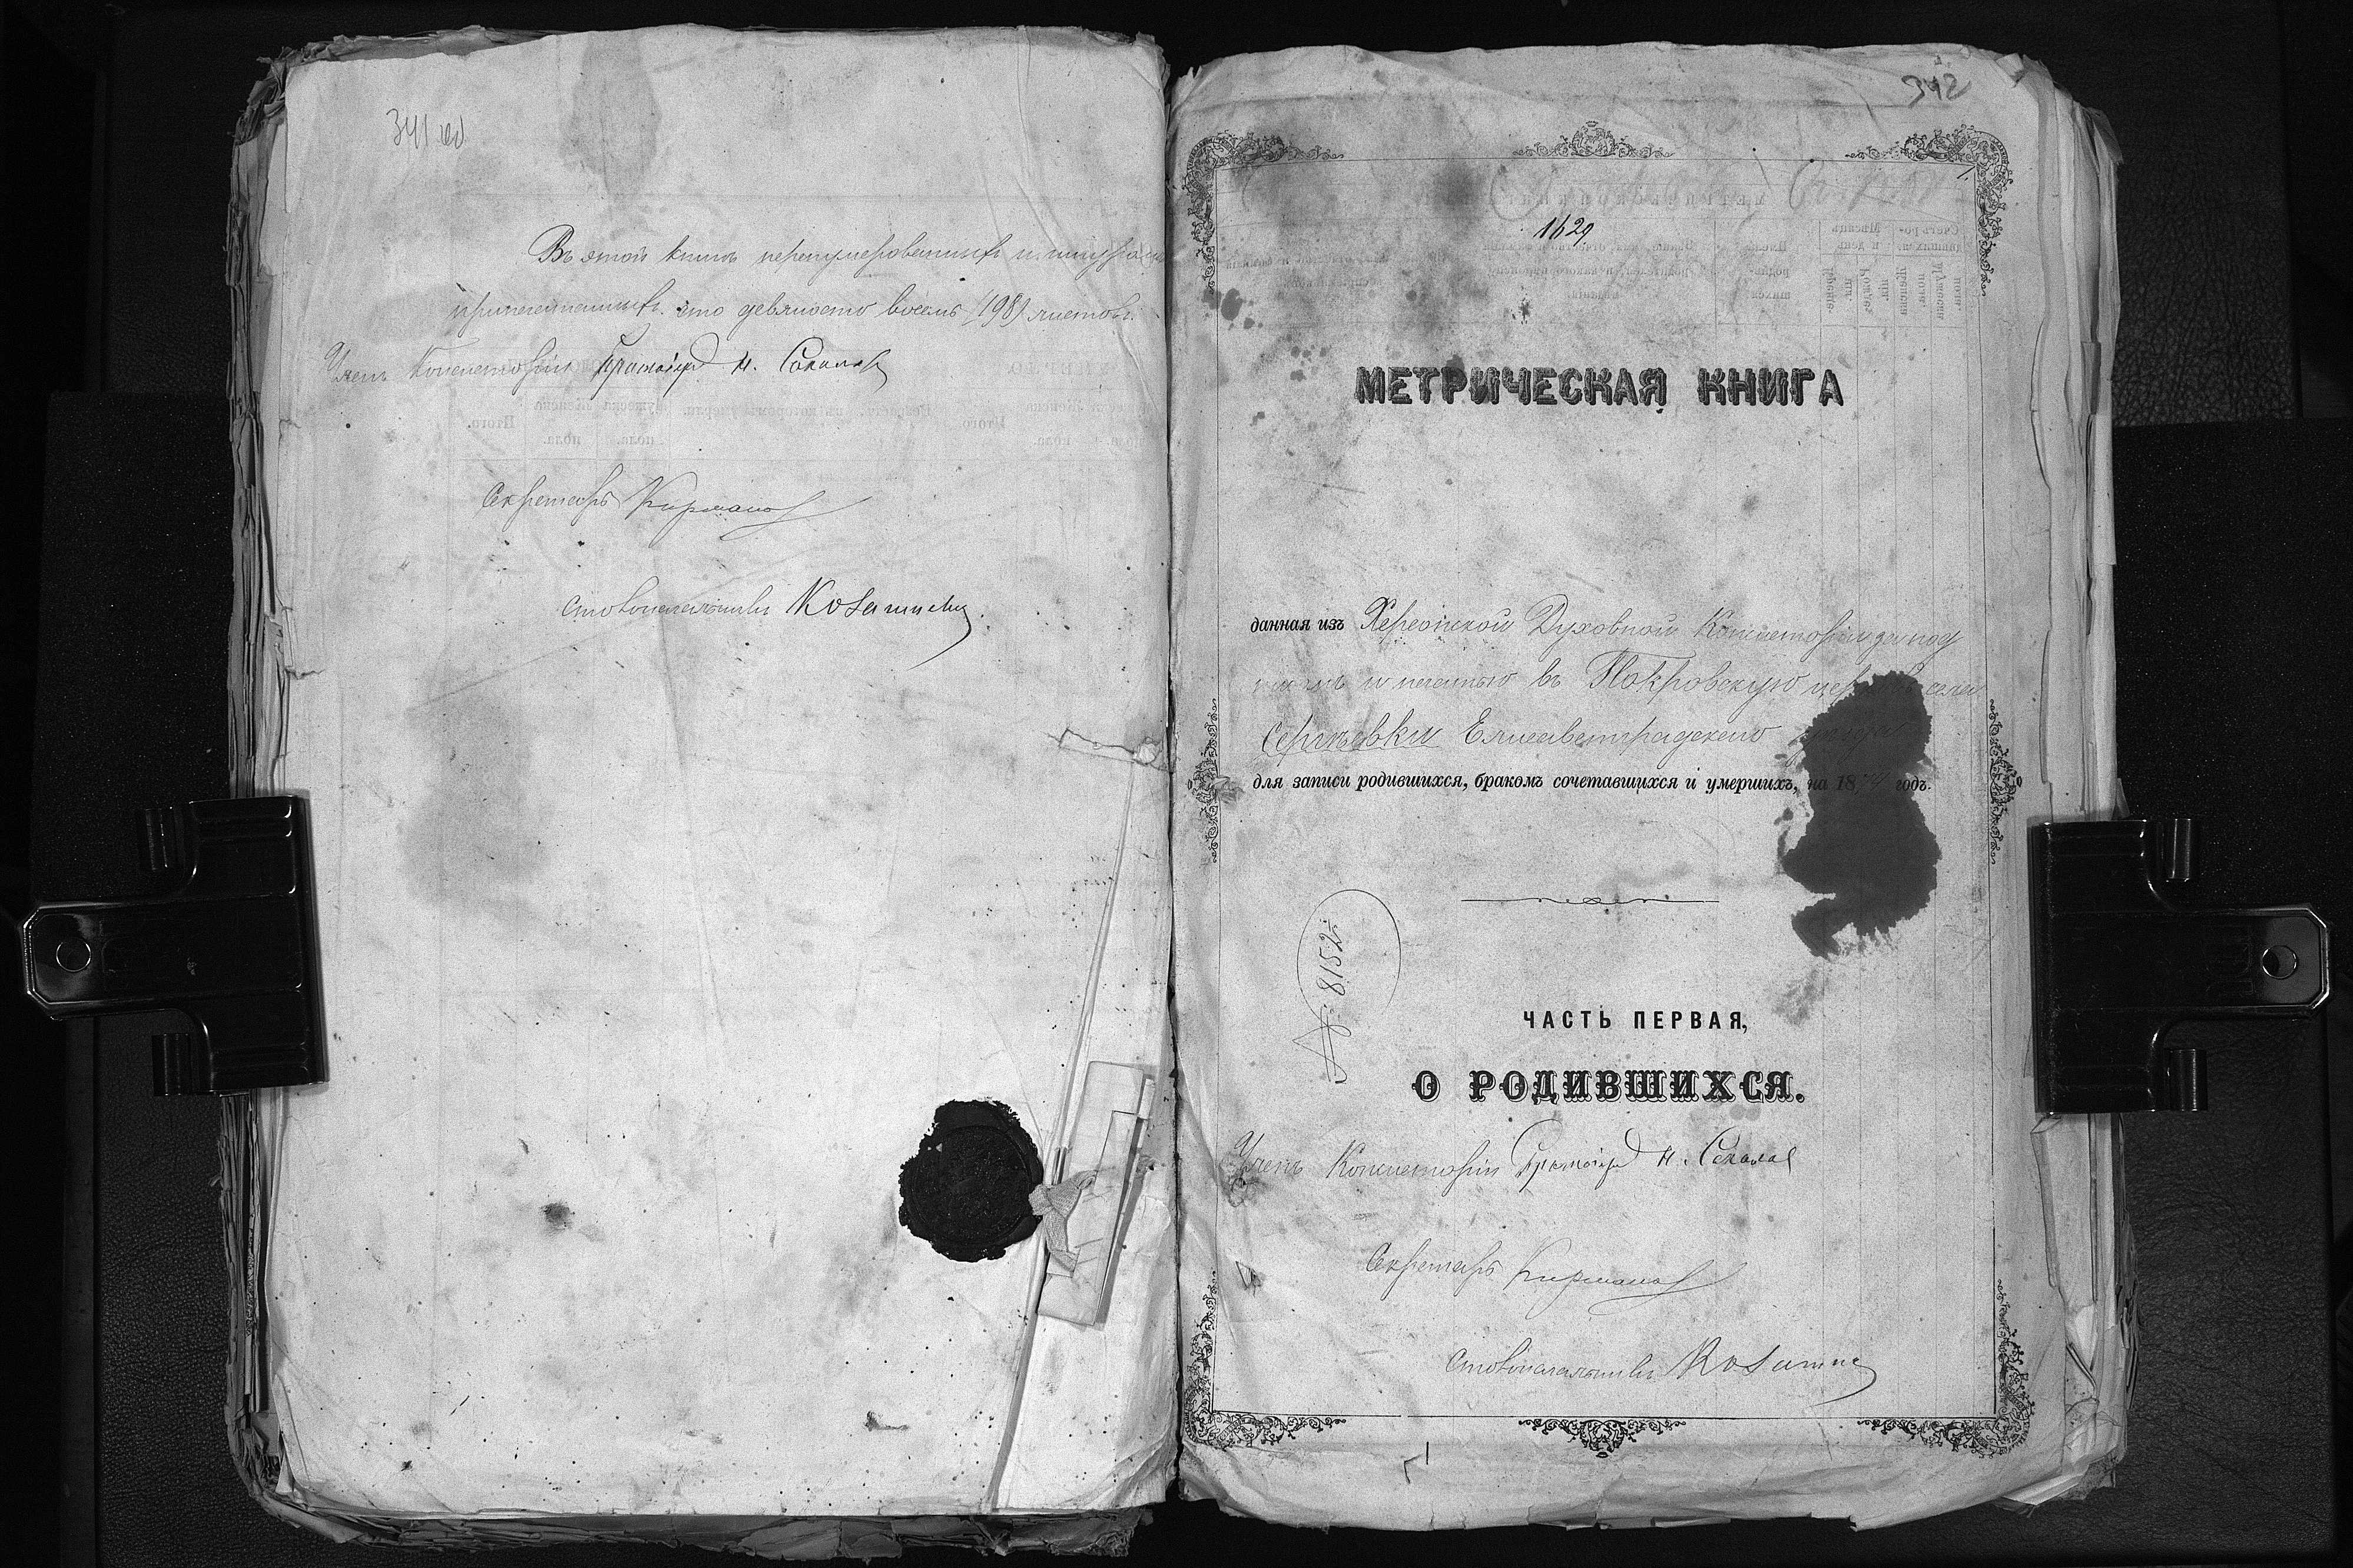 341 об
Въ этой книгѣ перенумерованныхъ и шнуромъ
припечатанныхъ сто девяносто восемь (198) листовъ.
Членъ Консисторіи Протоіерей Н. Соколовъ
Секретарь
Столоначальникъ
342
1629
МЕТРИЧЕСКАЯ КНИГА
данная изъ Херсонской Духовной Консисторіи за под
и печатью въ Покровскую церковь села
Сергѣевки Елисаветградскаго уѣзда
для записи родившихся, бракомъ сочетавшихся и умершихъ, на 187 годъ.
№ 8152
ЧАСТЬ ПЕРВАЯ,
О РОДИВШИХСЯ.
Членъ Консисторіи Протоіерей Н. Соколовъ
Секретарь
Столоначальникъ